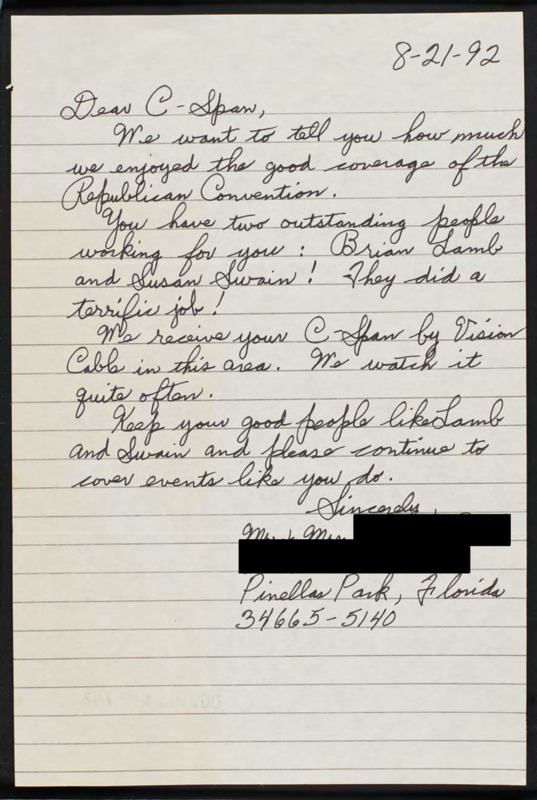 8-21-92
Dear C-Span,
We want to tell you how much
we enjoyed the good coverage of the
Republican Convention.
You have two outstanding people
working for you: Brian Lamb
and Susan Swain! They did a
terrific job!
We receive your C-Span by Vision
Cable in this area. We watch it
quite often.
Keep your good people like Lamb
and Swain and please continue to
cover events like you do.
Sincerely,
Mr. & Mrs.
Pinellas Park, Florida
34665-5140